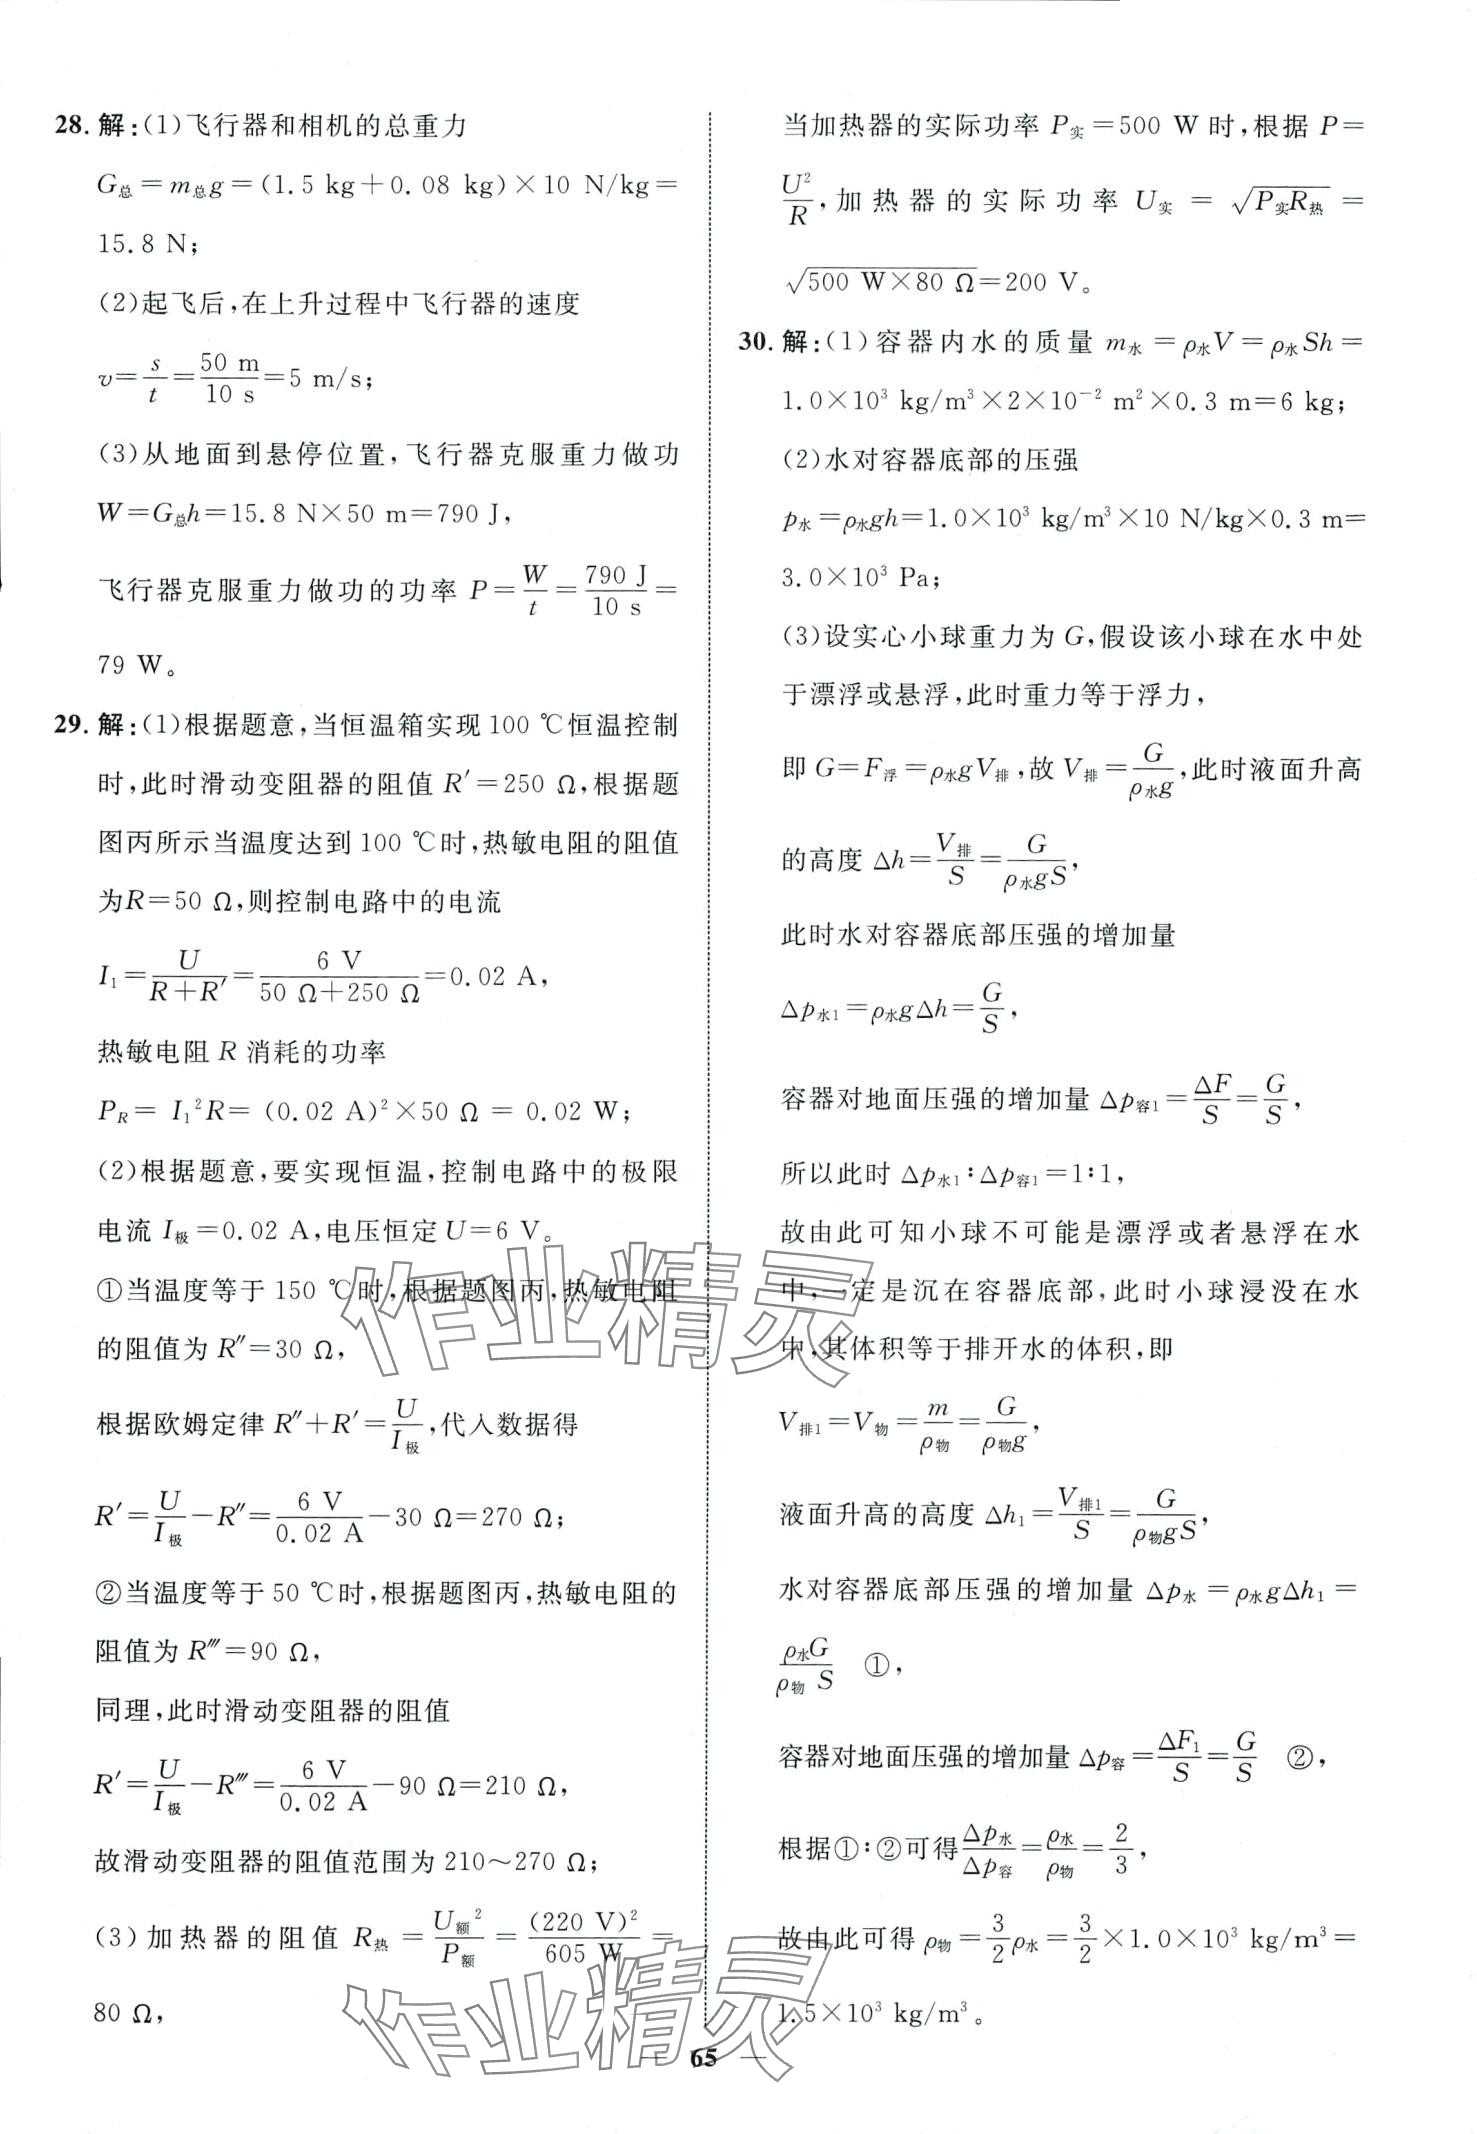 28. 解:(1)飞行器和相机的总重力
G总＝m总g＝(1.5 kg＋0.08 kg)×10 N/kg＝
15.8 N;
(2)起飞后,在上升过程中飞行器的速度
v＝s/t＝50 m/10 s＝5 m/s;
(3)从地面到悬停位置,飞行器克服重力做功
W＝G总h＝15.8 N×50 m＝790 J,
飞行器克服重力做功的功率 P＝W/t＝790 J/10 s＝
79 W。
29. 解:(1)根据题意,当恒温箱实现100 ℃恒温控制
时,此时滑动变阻器的阻值 R′＝250 Ω,根据题
图丙所示当温度达到 100 ℃时,热敏电阻的阻值
为R＝50 Ω,则控制电路中的电流
I₁＝U/(R＋R′)＝6 V/(50 Ω＋250 Ω)＝0.02 A,
热敏电阻 R 消耗的功率
P_R＝ I₁²R＝ (0.02 A)²×50 Ω ＝ 0.02 W;
(2)根据题意,要实现恒温,控制电路中的极限
电流 I极＝0.02 A,电压恒定 U＝6 V。
①当温度等于 150 ℃时,根据题图丙,热敏电阻
的阻值为 R″＝30 Ω,
根据欧姆定律 R″＋R′＝U/I极,代入数据得
R′＝U/I极－R″＝6 V/0.02 A－30 Ω＝270 Ω;
②当温度等于 50 ℃时,根据题图丙,热敏电阻的
阻值为 R‴＝90 Ω,
同理,此时滑动变阻器的阻值
R′＝U/I极－R‴＝6 V/0.02 A－90 Ω＝210 Ω,
故滑动变阻器的阻值范围为 210～270 Ω;
(3)加热器的阻值 R热＝U额²/P额＝(220 V)²/605 W＝
80 Ω,
当加热器的实际功率 P实＝500 W 时,根据 P＝
U²/R,加热器的实际功率 U实＝√(P实R热)＝
√(500 W×80 Ω)＝200 V。
30. 解:(1)容器内水的质量 m水＝ρ水V＝ρ水Sh＝
1.0×10³ kg/m³×2×10⁻² m²×0.3 m＝6 kg;
(2)水对容器底部的压强
p水＝ρ水gh＝1.0×10³ kg/m³×10 N/kg×0.3 m＝
3.0×10³ Pa;
(3)设实心小球重力为 G,假设该小球在水中处
于漂浮或悬浮,此时重力等于浮力,
即 G＝F浮＝ρ水gV排,故 V排＝G/(ρ水g),此时液面升高
的高度 Δh＝V排/S＝G/(ρ水gS),
此时水对容器底部压强的增加量
Δp水1＝ρ水gΔh＝G/S,
容器对地面压强的增加量 Δp容1＝ΔF/S＝G/S,
所以此时 Δp水1∶Δp容1＝1∶1,
故由此可知小球不可能是漂浮或者悬浮在水
中,一定是沉在容器底部,此时小球浸没在水
中,其体积等于排开水的体积,即
V排1＝V物＝m/ρ物＝G/(ρ物g),
液面升高的高度 Δh₁＝V排1/S＝G/(ρ物gS),
水对容器底部压强的增加量 Δp水＝ρ水gΔh₁＝
ρ水G/(ρ物 S) ①,
容器对地面压强的增加量 Δp容＝ΔF₁/S＝G/S ②,
根据①∶②可得Δp水/Δp容＝ρ水/ρ物＝2/3,
故由此可得 ρ物＝3/2ρ水＝3/2×1.0×10³ kg/m³＝
1.5×10³ kg/m³。
作业精灵
作业精灵
— 65 —